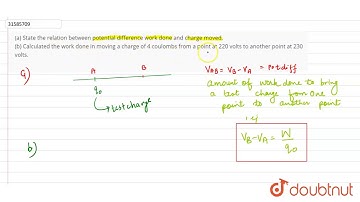 31585709
(a) State the relation between potential difference work done and charge moved.
(b) Calculated the work done in moving a charge of 4 coulombs from a point at 220 volts to another point at 230
volts.
a)
A B
V_AB = V_B - V_A = Pot diff
q₀
test charge
amount of work done to bring
a test charge from one
point to another point
V_B - V_A = W/q₀
b)
doubtnut